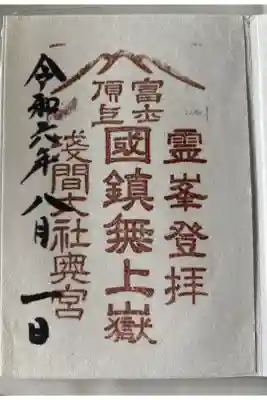 霊峯登拝
富士
頂上
國鎮無上嶽
淺間大社奥宮
令和六年八月一日